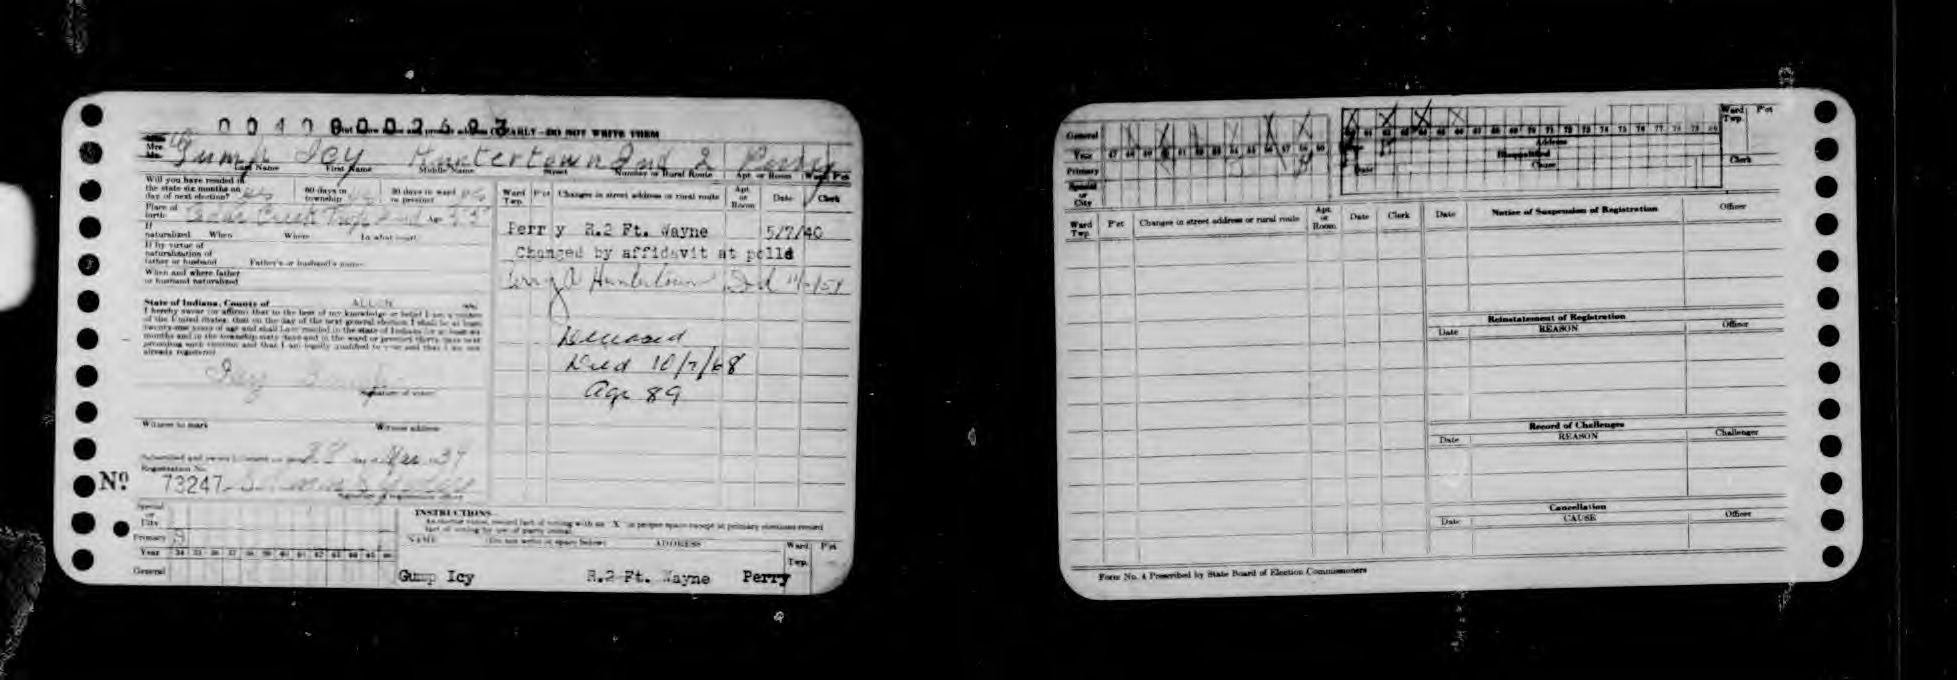 0 0 4 0 0 0 0 2 6 9 3
CLEARLY-DO NOT WRITE THEM
Mrs.
Gump Icy Huntertown Ind 2 Perry
Last Name First Name Middle Name Street Number or Rural Route Apt. or Room Ward P'ct
Will you have resided in
the state six months on
day of next election? yes
60 days in
township yes
30 days in ward
or precinct yes
Place of
birth Cedar Creek Twp Ind Age 55
If
naturalized When Where In what court
If by virtue of
naturalization of
father or husband Father's or husband's name
When and where father
or husband naturalized
State of Indiana, County of ALLEN
I hereby swear (or affirm) that to the best of my knowledge or belief I am a citizen
of the United States; that on the day of the next general election I shall be at least
twenty-one years of age and shall have resided in the state of Indiana for at least six
months and in the township sixty days and in the ward or precinct thirty days next
preceding such election and that I am legally qualified to vote and that I am not
already registered
Icy Gump
Signature of voter
Witness to mark Witness address
Subscribed and sworn to
Registration No.
Nº 73247
Special
or
City
Primary
Year 34 35 36 37 38 39 40 41 42 43 44 45 46
General
Ward
Twp. P'ct Changes in street address or rural route Apt.
or
Room Date Clerk
Perry R.2 Ft. Wayne 5/7/40
Changed by affidavit at polls
Perry Huntertown Ind
Deceased
Died 10/7/68
Age 89
INSTRUCTIONS
NAME (Do not write in space below) ADDRESS Ward
Twp. P'ct
Gump Icy R.2 Ft. Wayne Perry
General
Year 47 48 49 50 51 52 53 54 55 56 57 58 59
Primary
Special
or
City
60 61 62 63 64 65 66 67 68 69 70 71 72 73 74 75 76 77 78 79 80
Address
Disqualified
Cause
Date
Ward
Twp. P'ct
Clerk
Ward
Twp. P'ct Changes in street address or rural route Apt.
or
Room Date Clerk
Date Notice of Suspension of Registration Officer
Reinstatement of Registration
Date REASON Officer
Record of Challenges
Date REASON Challenger
Cancellation
Date CAUSE Officer
Form No. 4 Prescribed by State Board of Election Commissioners